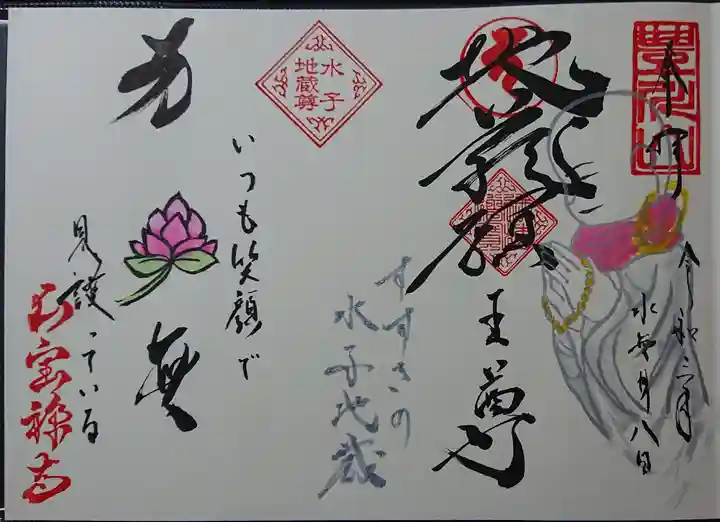 奉拝
令和三年
水無月八日
地蔵願
王尊
すすきの
水子地蔵
水子
地蔵尊
いつも笑顔で
見護っている
宝禅寺